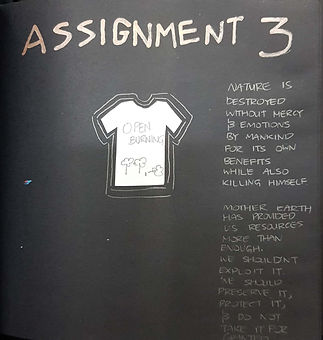 ASSIGNMENT 3
OPEN
BURNING
NATURE IS
DESTROYED
WITHOUT MERCY
& EMOTIONS
BY MANKIND
FOR ITS OWN
BENEFITS
WHILE ALSO
KILLING HIMSELF
MOTHER EARTH
HAS PROVIDED
US RESOURCES
MORE THAN
ENOUGH.
WE SHOULDN'T
EXPLOIT IT.
WE SHOULD
PRESERVE IT,
PROTECT IT,
& DO NOT
TAKE IT FOR
GRANTED